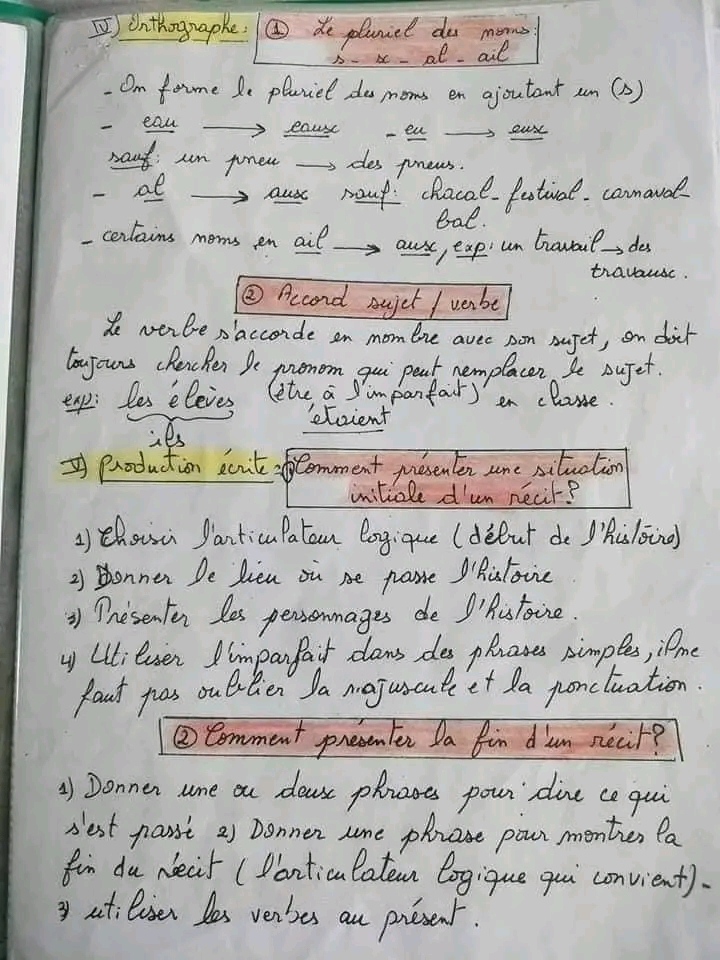 IV) Orthographe: ① Le pluriel des noms:
s - x - al - ail
- On forme le pluriel des noms en ajoutant un (s)
- eau → eaux - eu → eux
sauf: un pneu → des pneus.
- al → aux sauf: chacal - festival - carnaval -
bal.
- certains noms en ail → aux, exp: un travail → des
travaux.
② Accord sujet / verbe
Le verbe s'accorde en nombre avec son sujet, on doit
toujours chercher le pronom qui peut remplacer le sujet.
exp: les élèves (être à l'imparfait) en classe.
ils étaient
V) Production écrite: ① Comment présenter une situation
initiale d'un récit?
1) Choisir l'articulateur logique (début de l'histoire)
2) Donner le lieu où se passe l'histoire
3) Présenter les personnages de l'histoire.
4) Utiliser l'imparfait dans des phrases simples, il ne
faut pas oublier la majuscule et la ponctuation.
② Comment présenter la fin d'un récit?
1) Donner une ou deux phrases pour dire ce qui
s'est passé 2) Donner une phrase pour montrer la
fin du récit (l'articulateur logique qui convient).
3) utiliser les verbes au présent.